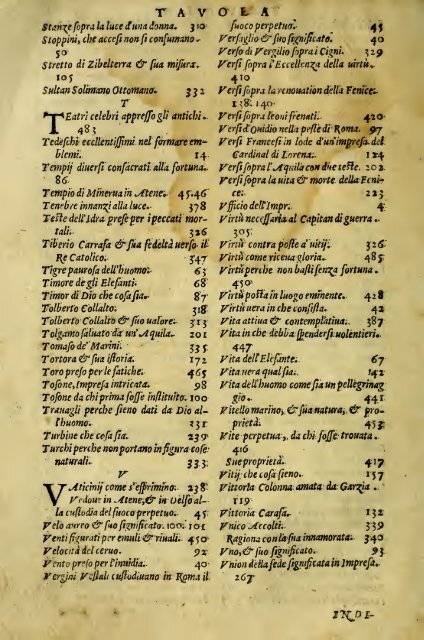 TAVOLA
Stanze sopra la luce d'una donna. 310
Stoppini, che accesi non si consumano.
50
Stretto di Zibelterra & sua misura.
105
Sultan Solimano Ottomano. 332
T
TEatri celebri appresso gli antichi.
483
Tedeschi eccellentissimi nel formare em-
blemi. 14
Tempij diuersi consacrati alla fortuna.
86
Tempio di Minerua in Atene. 45.46
Tenebre innanzi alla luce. 378
Teste dell'Idra prese per i peccati mor-
tali. 326
Tiberio Carrafa & sua fedeltà uerso il
Re Catolico. 347
Tigre paurosa dell'huomo. 63
Timore de gli Elefanti. 68
Timor di Dio che cosa sia. 87
Tolberto Collalto. 318
Tolberto Collalto & suo ualore. 313
Tolgamo saluato da un'Aquila. 201
Tomaso de' Marini. 335
Tortora & sua istoria. 172
Toro preso per le fatiche. 465
Tosone, Impresa intricata. 98
Tosone da chi prima fosse instituito. 100
Trauagli perche sieno dati da Dio al-
l'huomo. 231
Turbine che cosa sia. 239
Turchi perche non portano in figura cose
naturali. 333
V
VAticinij come s'esprimino. 238
Vedoue in Atene, & in Delfo al-
la custodia del fuoco perpetuo. 45
Velo aureo & suo significato. 100. 101
Venti figurati per emuli & riuali. 450
Velocità del ceruo. 92
Vento preso per l'inuidia. 40
Vergini Vestali custodiuano in Roma il
fuoco perpetuo. 45
Versaglio & suo significato. 40
Verso di Vergilio sopra i Cigni. 329
Versi sopra l'Eccellenza della uirtù.
410
Versi sopra la renouation della Fenice.
138. 140.
Versi sopra leoni frenati. 420
Versi d'Ouidio nella peste di Roma. 97
Versi Francesi in lode d'un'impresa del
Cardinal di Lorena. 124
Versi sopra l'Aquila con due teste. 202
Versi sopra la uita & morte della Feni-
ce. 223
Vfficio dell'Impr. 4
Virtù necessaria al Capitan di guerra.
305
Virtù contra poste a' uitij. 326
Virtù come riceua gloria. 485
Virtù perche non basti senza fortuna.
450
Virtù posta in luogo eminente. 428
Virtù uera in che consista. 42
Vita attiua & contemplatiua. 387
Vita in che debba spendersi uolentieri.
447
Vita dell'Elefante. 67
Vita uera qual sia. 142
Vita dell'huomo come sia un pellegrinag
gio. 441
Vitello marino, & sua natura, & pro-
prietà. 453
Vite perpetua, da chi fosse trouata.
416
Sue proprietà. 417
Vitij che cosa sieno. 157
Vittoria Colonna amata da Garzia.
119
Vittoria Carafa. 132
Vnico Accolti. 339
Ragiona con la sua innamorata. 340
Vno, & suo significato. 93
Vnion della fede significata in Impresa.
267
INDI-